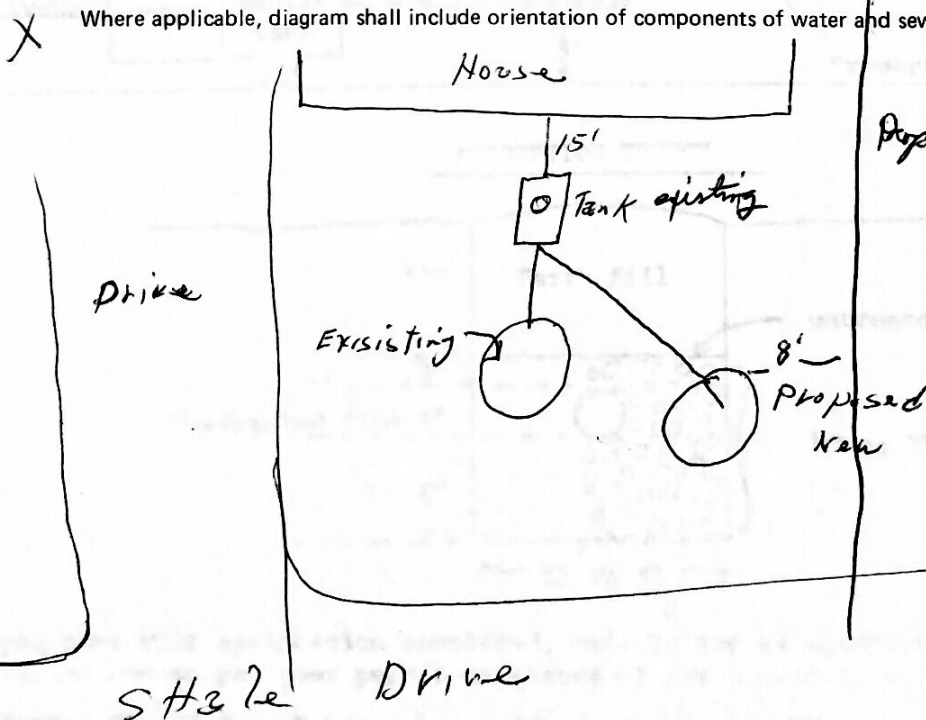 X Where applicable, diagram shall include orientation of components of water and sew
House
15'
Tank existing
Drive
Exisisting
8'
Proposed
New
Drive